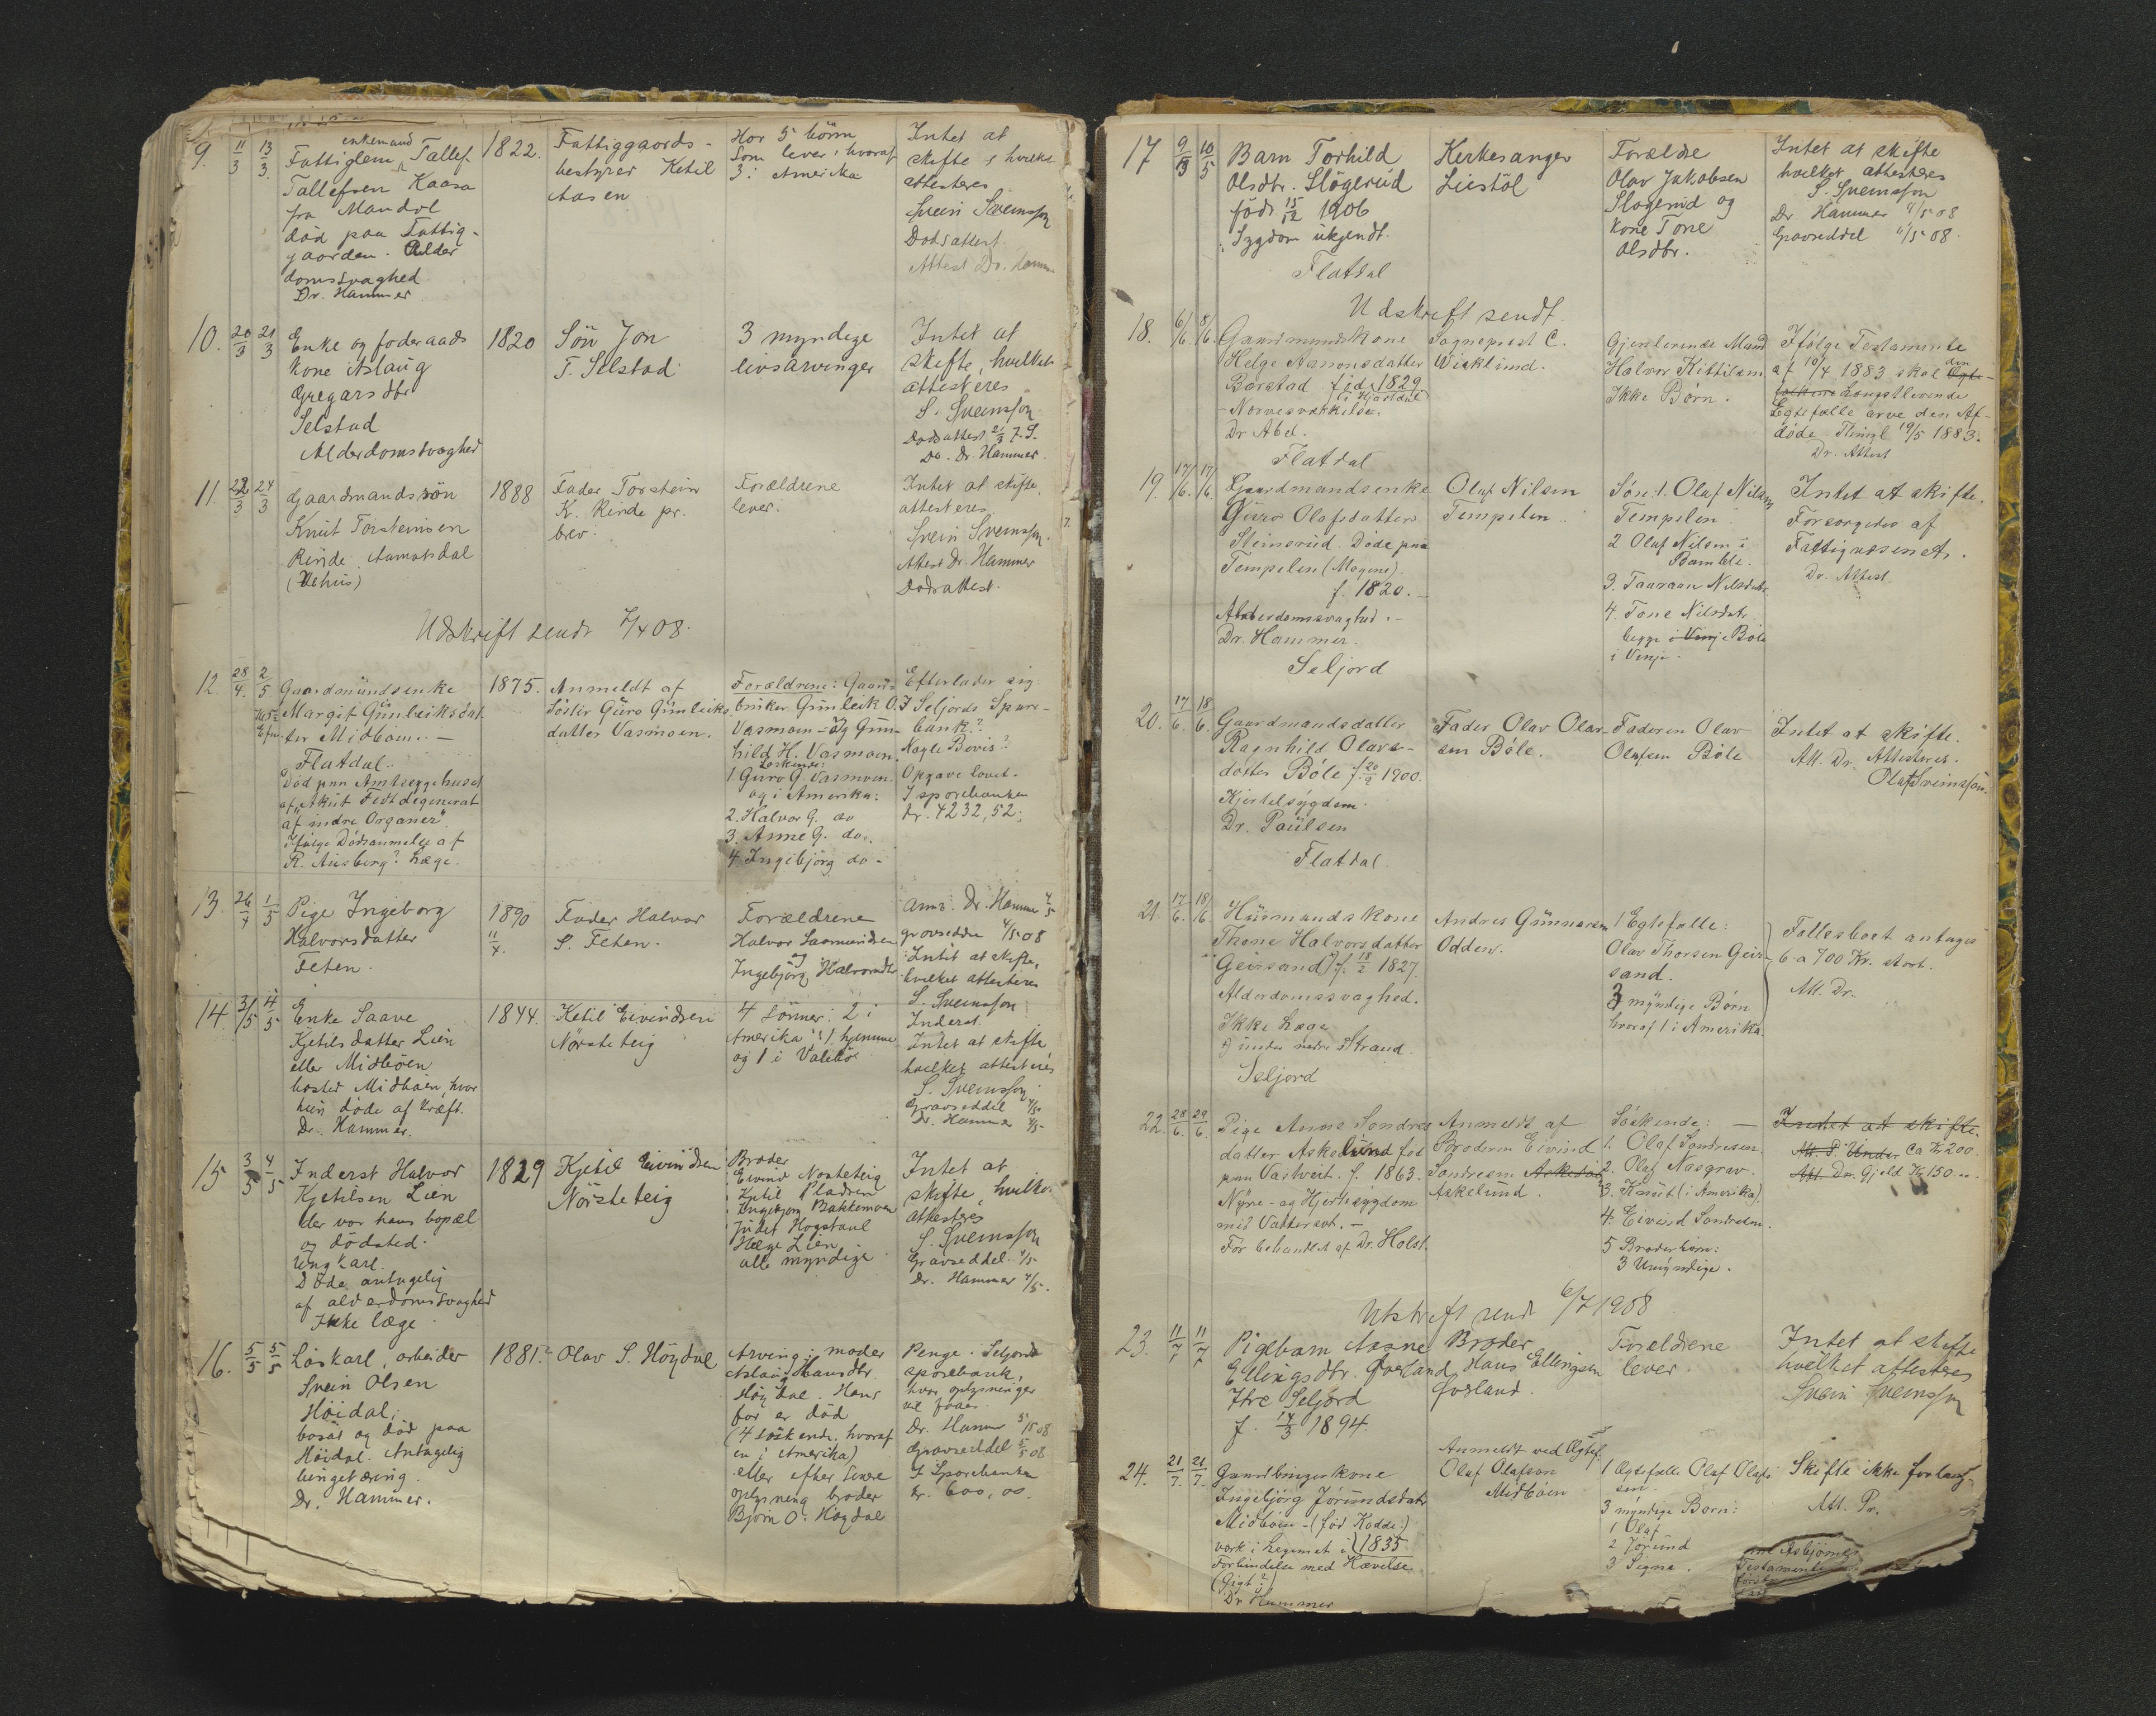 9. 11/3 13/3.
enkemand
Fattiglem Tallef
Tallefsen Kaasa
fra Mandal
död paa Fattig-
gaarden. Alder
domssvaghed
Dr. Hammer
1822.
Fattiggaards-
bestyrer Ketil
Aasen
Har 5 börn
som lever, hvoraf
3 i Amerika
Intet at
skifte, hvilket
attesteres
Svein Sveinsson
Dödsattest
Attest Dr. Hamm
10. 20/3 21/3
Enke og föderaads
kone Aslaug
Gregarsdtr
Selstad
Alderdomssvaghed
1820
Sön Jon
T. Selstad
3 myndige
livsarvinger
Intet at
skifte, hvilket
attesteres
S. Sveinsson
Dödsattest 21/3
Do. Dr. Hammer
11. 22/3 24/3
Gaardmandssön
Knut Torsteinsen
Rinde Aamotsdal
(Uehus)
1888
Fader Torstein
K. Rinde pr.
brev.
Forældrene
lever.
Intet at skifte
attesteres
Svein Sveinsson.
Attest Dr. Hammer
Dödsattest.
Udskrift sendt 7/4 08.
12 28/4. 2/5
Gaardmandsenke
Margit Gunleiksdat
ter Midböen. —
Flatdal.
Död paa Amtssygehuset
af "Akut Fedt degenerat
af indre Organer"
ifölge Dödsanmelse af
R. Ausberg? Læge.
1875.
Anmeldt af
Söster Guro Gunleiks
datter Vasmoen.
Forældrene: Gaard
bruker Gunleik O.
Vasmoen og Gun-
hild H. Vasmoen.
Söskende:
1 Guro G. Vasmoen.
og i Amerika:
2. Halvor G. do
3. Anne G. do.
4. Ingebjörg do -
Efterlader sig
I Seljords Spare-
bank?
Nogle Bevis?
Opgave lovet.
I sparebanken
kr. 4232,52.
13. 26/4 1/5
Pige Ingeborg
Halvorsdatter
Feten.
1890
11/4.
Fader Halvor
S. Feten.
Forældrene
Halvor Saamundsen
og
Ingebjörg Halvorsdtr
Anm. Dr. Hammer 4/5
gravseddel 4/5 08
Intet at skifte,
hvilket attesteres
S. Sveinsson
14. 3/5 4/5
Enke Saave
Kjetilsdatter Lien
eller Midböen
bosted Midböen, hvor
hun döde af Kræft.
Dr. Hammer.
1844.
Ketil Eivindsen
Nörsteteig
4 Sönner: 2 i
Amerika, 1 hjemme
og 1 i Valebö
Inderst.
Intet at skifte
hvilket attesteres
S. Sveinsson
Gravseddel 4/5
Dr. Hammer 4/5-
15 3/5 4/5
Inderst Halvor
Kjetilsen Lien
der var hans bopæl
og dödsted.
Ungkarl.
Döde antagelig
af alderdomssvaghed
Ikke læge.
1829
Kjetil Eivindsen
Nörsteteig
Broder
Eivind Nosteteig
Kjetil Pladsen
Ingebjorg Bakkemoen
Judit Hogstaul
Hæge Lien
alle myndige
Intet at
skifte, hvilket
attesteres
S. Sveinsson
Gravseddel 4/5
Dr. Hammer 4/5.
16. 5/5 5/5
Löskarl, arbeider
Svein Olsen
Höidal,
bosat og död paa
Höidal. Antagelig
lungetæring.
Dr. Hammer.
1881?
Olav S. Höydal
Arving: moder
Aslaug Hansdtr.
Höydal. Hans
far er död
(4 söskende, hvoraf
en i Amerika)
eller efter senere
oplysning broder
Bjørn O. Höydal
Penge i Seljords
sparebank,
hvor oplysninger
vil faaes.
Dr. Hamm 5/5 08
Gravseddel 5/5 08
I Sparebanken
kr. 600,00.
17 9/5 10/5
Barn Torhild
Olsdtr. Slögerud
född 15/12 1906
Sygdom ukjendt.
Flatdal
Kirkesanger
Liestöl
Forældre
Olav Jakobsen
Slogerud og
Kone Tone
Olsdtr.
Intet at skifte
hvilket attesteres
S. Sveinsson
Dr Hammer 11/5 08
Gravseddel 11/5 08.
Udskrift sendt
18. 6/6. 8/6.
Gaardmandskone
Helge Aamonsdatter
Börstad föd 1829
i Hjartdal
Nervesvækkelse.
Dr Abel.
Flatdal
Sogneprest C.
Wicklund.
Gjenlevende Mand
Halvor Kittilsen
Ikke Börn.
Ifölge Testamente
af 10/4 1883 skal den
Længstlevende
Egtefælle arve den Af-
döde. Thingl 19/5 1883.
Dr. Attest
19. 17/6. 17/6.
Gaardmandsenke
Guro Olafsdatter
Steinsrud. Döde paa
Tempelen (Mogene).
f. 1820.
Alderdomssvaghed. -
Dr. Hammer.
Seljord
Oluf Nilsen
Tempelen.
Søn: 1. Oluf Nilsen
Tempelen
2 Oluf Nilsen i
Bamble.
3. Taaraan Nilsdatr
4. Tone Nilsdatr.
begge i Vinje Böle
i Vinje.
Intet at skifte.
Forsørgedes af
Fattigvæsenet.
Dr. Attest.
20. 17/6. 18/6.
Gaardmandsdatter
Ragnhild Olavs-
datter Böle f. 20/2 1900.
Kjertelsygdom.
Dr. Paulsen
Flatdal.
Fader Olav Olav-
sen Böle.
Faderen Olav
Olafsen Böle
Intet at skifte.
Att. Dr. Attesteres.
Olaf Sveinsson.
21. 17/6. 18/6
Husmandskone
Thone Halvorsdatter
Geirsand) f. 18/2 1827.
Alderdomssvaghed.
Ikke Læge
) under nedre Strand.
Seljord
Andres Gunnarsen
Odden.
1 Egtefælle:
Olav Thorsen Geir-
sand.
3 myndige Børn
hvoraf 1 i Amerika.
Fællesboet antages
6 a 700 Kr. stort.
Att. Dr.
22. 28/6. 29/6.
Pige Anne Sondres
datter Askelund föd
paa Vastveit. f. 1863.
Nyre- og Hjertesygdom
med Vattersot. —
Før behandlet af Dr. Holst.
Anmeldt af
Broderen Eivind
Sondresen
Askelund.
Søskende: —
1. Olaf Sondresen
2. Olaf Nasgrav.
3. Knut (i Amerika).
4. Eivind Sondresen.
5 Broderbörn:
3 Umyndige.
Intet at skifte.
Att. P. Under Ca Kr 200.
Att. Dr. Gjeld Kr 150...
Utskrift sendt 6/7 1908
23. 11/7 11/7
Pigebarn Aasne
Ellingsdtr. Överland
Ytre Seljord
f. 14/3 1894.
Broder
Hans Ellingsen
Överland.
Forældrene
lever
Intet at skifte
hvilket attesteres
Svein Sveinsson
24. 21/7. 21/7.
Gaardbrugerkone
Ingebjörg Jörundsdatr
Midböen - (föd Kodde)
værk i Legemet i 1835
Forbindelse med Hævelse
(Gigt?)
Dr Hammer
Anmeldt ved Ægtef.
Olaf Olafson
Midböen
1 Ægtefælle Olaf Olafs
sen.
3 myndige Børn:
1 Olaf
2 Jorund
3 Signe.
Skifte ikke forlangt
Att. Pr.
Asbjörnsen
Testamente